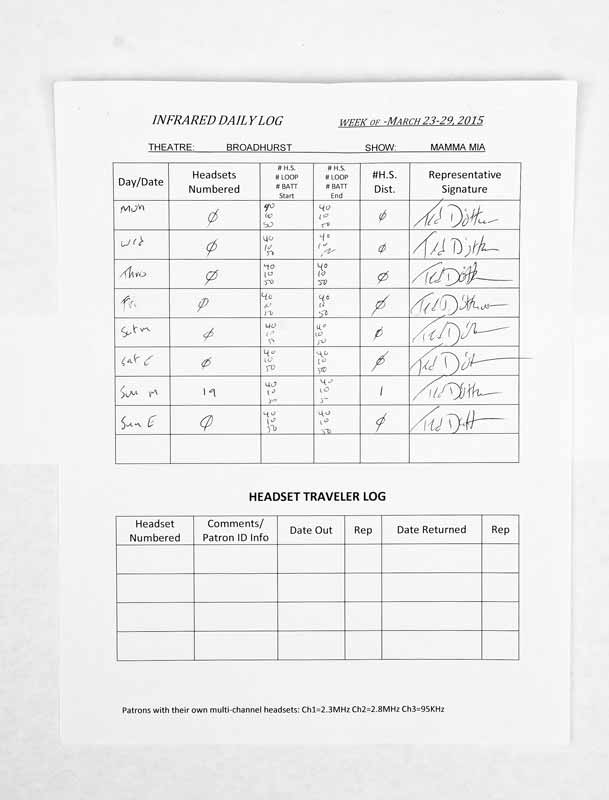 INFRARED DAILY LOG WEEK OF -MARCH 23-29, 2015
THEATRE: BROADHURST SHOW: MAMMA MIA
Day/Date Headsets Numbered # H.S. # LOOP # BATT Start # H.S. # LOOP # BATT End #H.S. Dist. Representative Signature
Mon Ø 40 10 50 40 10 50 Ø Ted
Wed Ø 40 10 50 40 10 Ø Ted
Thur Ø 40 10 50 40 10 50 Ø Ted
Fri Ø 40 10 40 10 50 Ø Ted
Sat m Ø 40 10 40 10 50 Ø Ted
Sat E Ø 40 10 50 40 10 50 Ø Ted
Sun m 19 40 10 40 10 1 Ted
Sun E Ø 40 10 50 40 10 50 Ø Ted
HEADSET TRAVELER LOG
Headset Numbered Comments/ Patron ID Info Date Out Rep Date Returned Rep
Patrons with their own multi-channel headsets: Ch1=2.3MHz Ch2=2.8MHz Ch3=95KHz